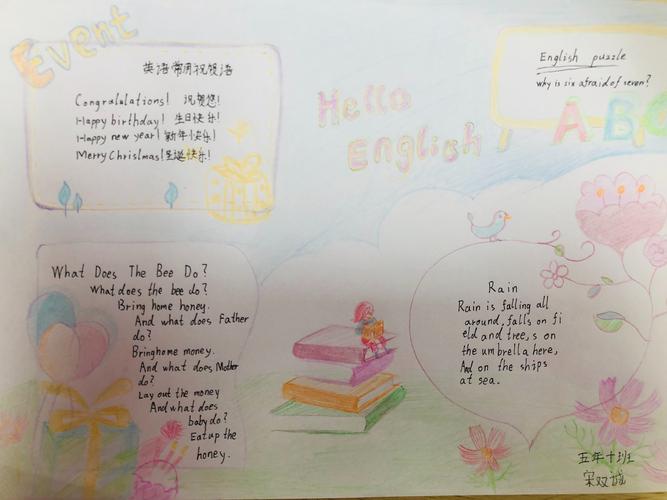 Event
英语常用祝贺语
Congralulations! 祝贺您!
Happy birthday! 生日快乐!
Happy new year! 新年快乐!
Merry Chrislmas! 圣诞快乐!
Hello
English!
English puzzle
why is six afraid of seven?
ABC
What Does The Bee Do?
What does the bee do?
Bring home honey.
And what does Father
do?
Bringhome money.
And what does Mother
do?
Lay out the money
And what does
baby do?
Eat up the
honey.
Rain
Rain is falling all
around, falls on fi
eld and tree,s on
the umbrella here,
And on the ships
at sea.
五年十班
宋双城